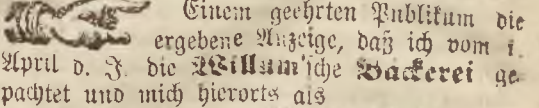 Einem geehrten Publikum die
ergebene Anzeige, daß ich vom 1.
April d. J. die Willum'sche Bäckerei ge-
pachtet und mich hierorts als